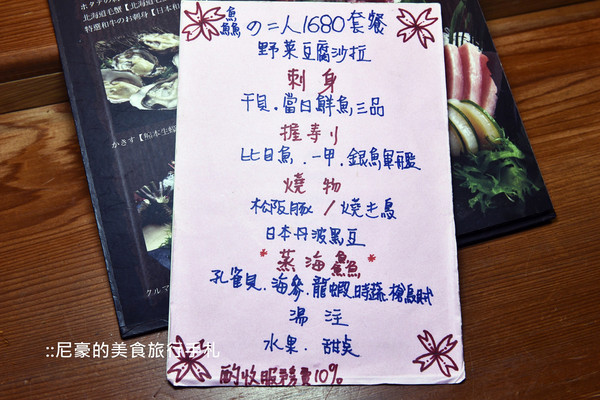 鱻の二人1680套餐
野菜豆腐沙拉
刺身
干貝.當日鮮魚三品
握寿り
比目魚.一甲.銀魚軍艦
燒物
松阪豚/燒き鳥
日本丹波黑豆
*蒸海鱻*
孔雀貝.海參.龍蝦.時蔬.槍烏賊
湯注
水果.甜奌
酌收服務費10%
::尼豪的美食旅行手札